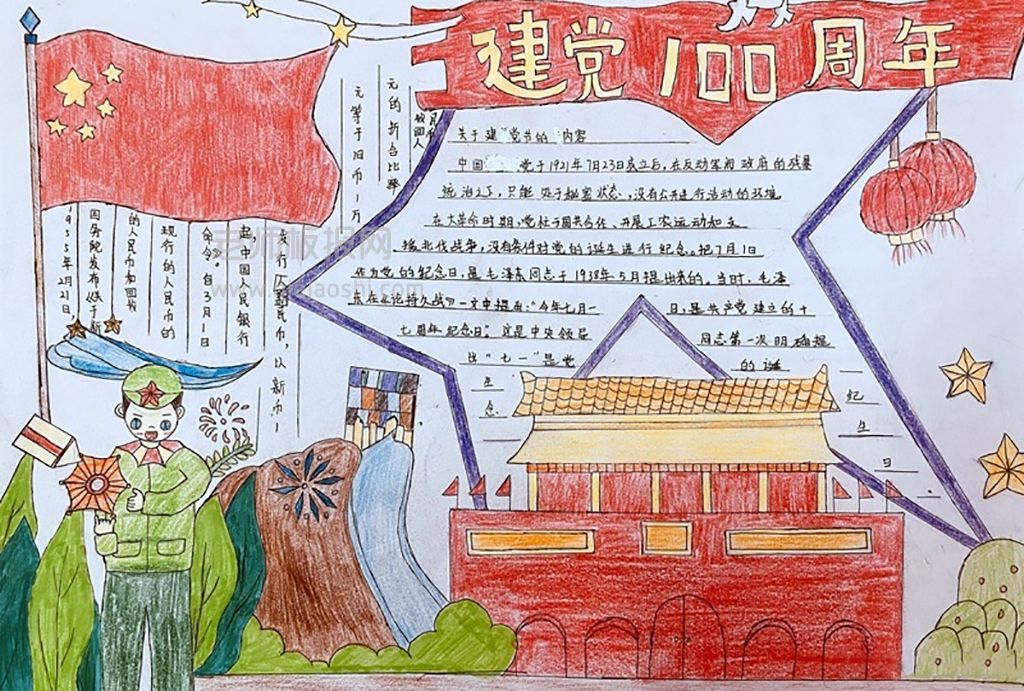 建党100周年
关于建党节的内容
中国 党于1921年7月23日成立后,在反动军阀政府的残暴
统治之下,只能处于秘密状态,没有公开进行活动的环境。
在大革命时期,党忙于国共合作、开展工农运动和支
援北伐战争,没有条件对党的诞生进行纪念。把7月1日
作为党的纪念日,是毛泽东同志于1938年5月提出来的。当时,毛泽
东在《论持久战》一文中提出:“今年七月一 日,是共产党建立的十
七周年纪念日”。这是中央领导 同志第一次明确提
出“七一”是党 的诞
生 纪
念 生
日。
民币
元的折合比率
元等于旧币1万
发行人民币,以新币1
起中国人民银行
命令》。自3月1日
现行的人民币的
的人民币和回收
国务院发布《关于新
1935年2月21日
老师板报网